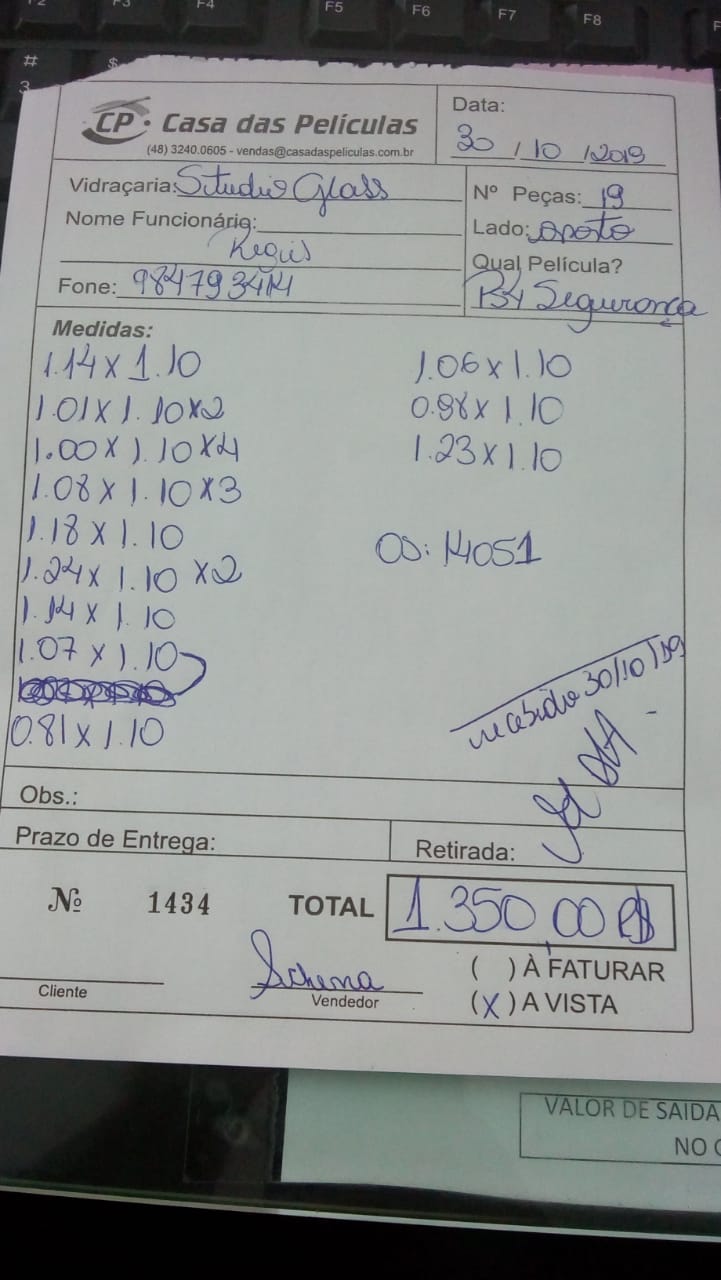 F4 F5 F6 F7 F8
#
3 $
CP. Casa das Películas
(48) 3240.0605 - vendas@casadaspeliculas.com.br
Data:
30 / 10 / 2019
Vidraçaria: Studio Glass
Nome Funcionário:
Regis
Fone: 984793414
Nº Peças: 19
Lado: oposto
Qual Película?
P.S4 Segurança
Medidas:
1.14 x 1.10
1.01 x 1.10 x 2
1.00 x 1.10 x 4
1.08 x 1.10 x 3
1.18 x 1.10
1.24 x 1.10 x 2
1.14 x 1.10
1.07 x 1.10
0.81 x 1.10
1.06 x 1.10
0.98 x 1.10
1.23 x 1.10
OS: 14051
recebido 30/10/19
Obs.:
Prazo de Entrega:
Retirada:
Nº 1434 TOTAL 1.350,00 R$
Cliente
Vendedor
( ) À FATURAR
(X) A VISTA
VALOR DE SAIDA
NO